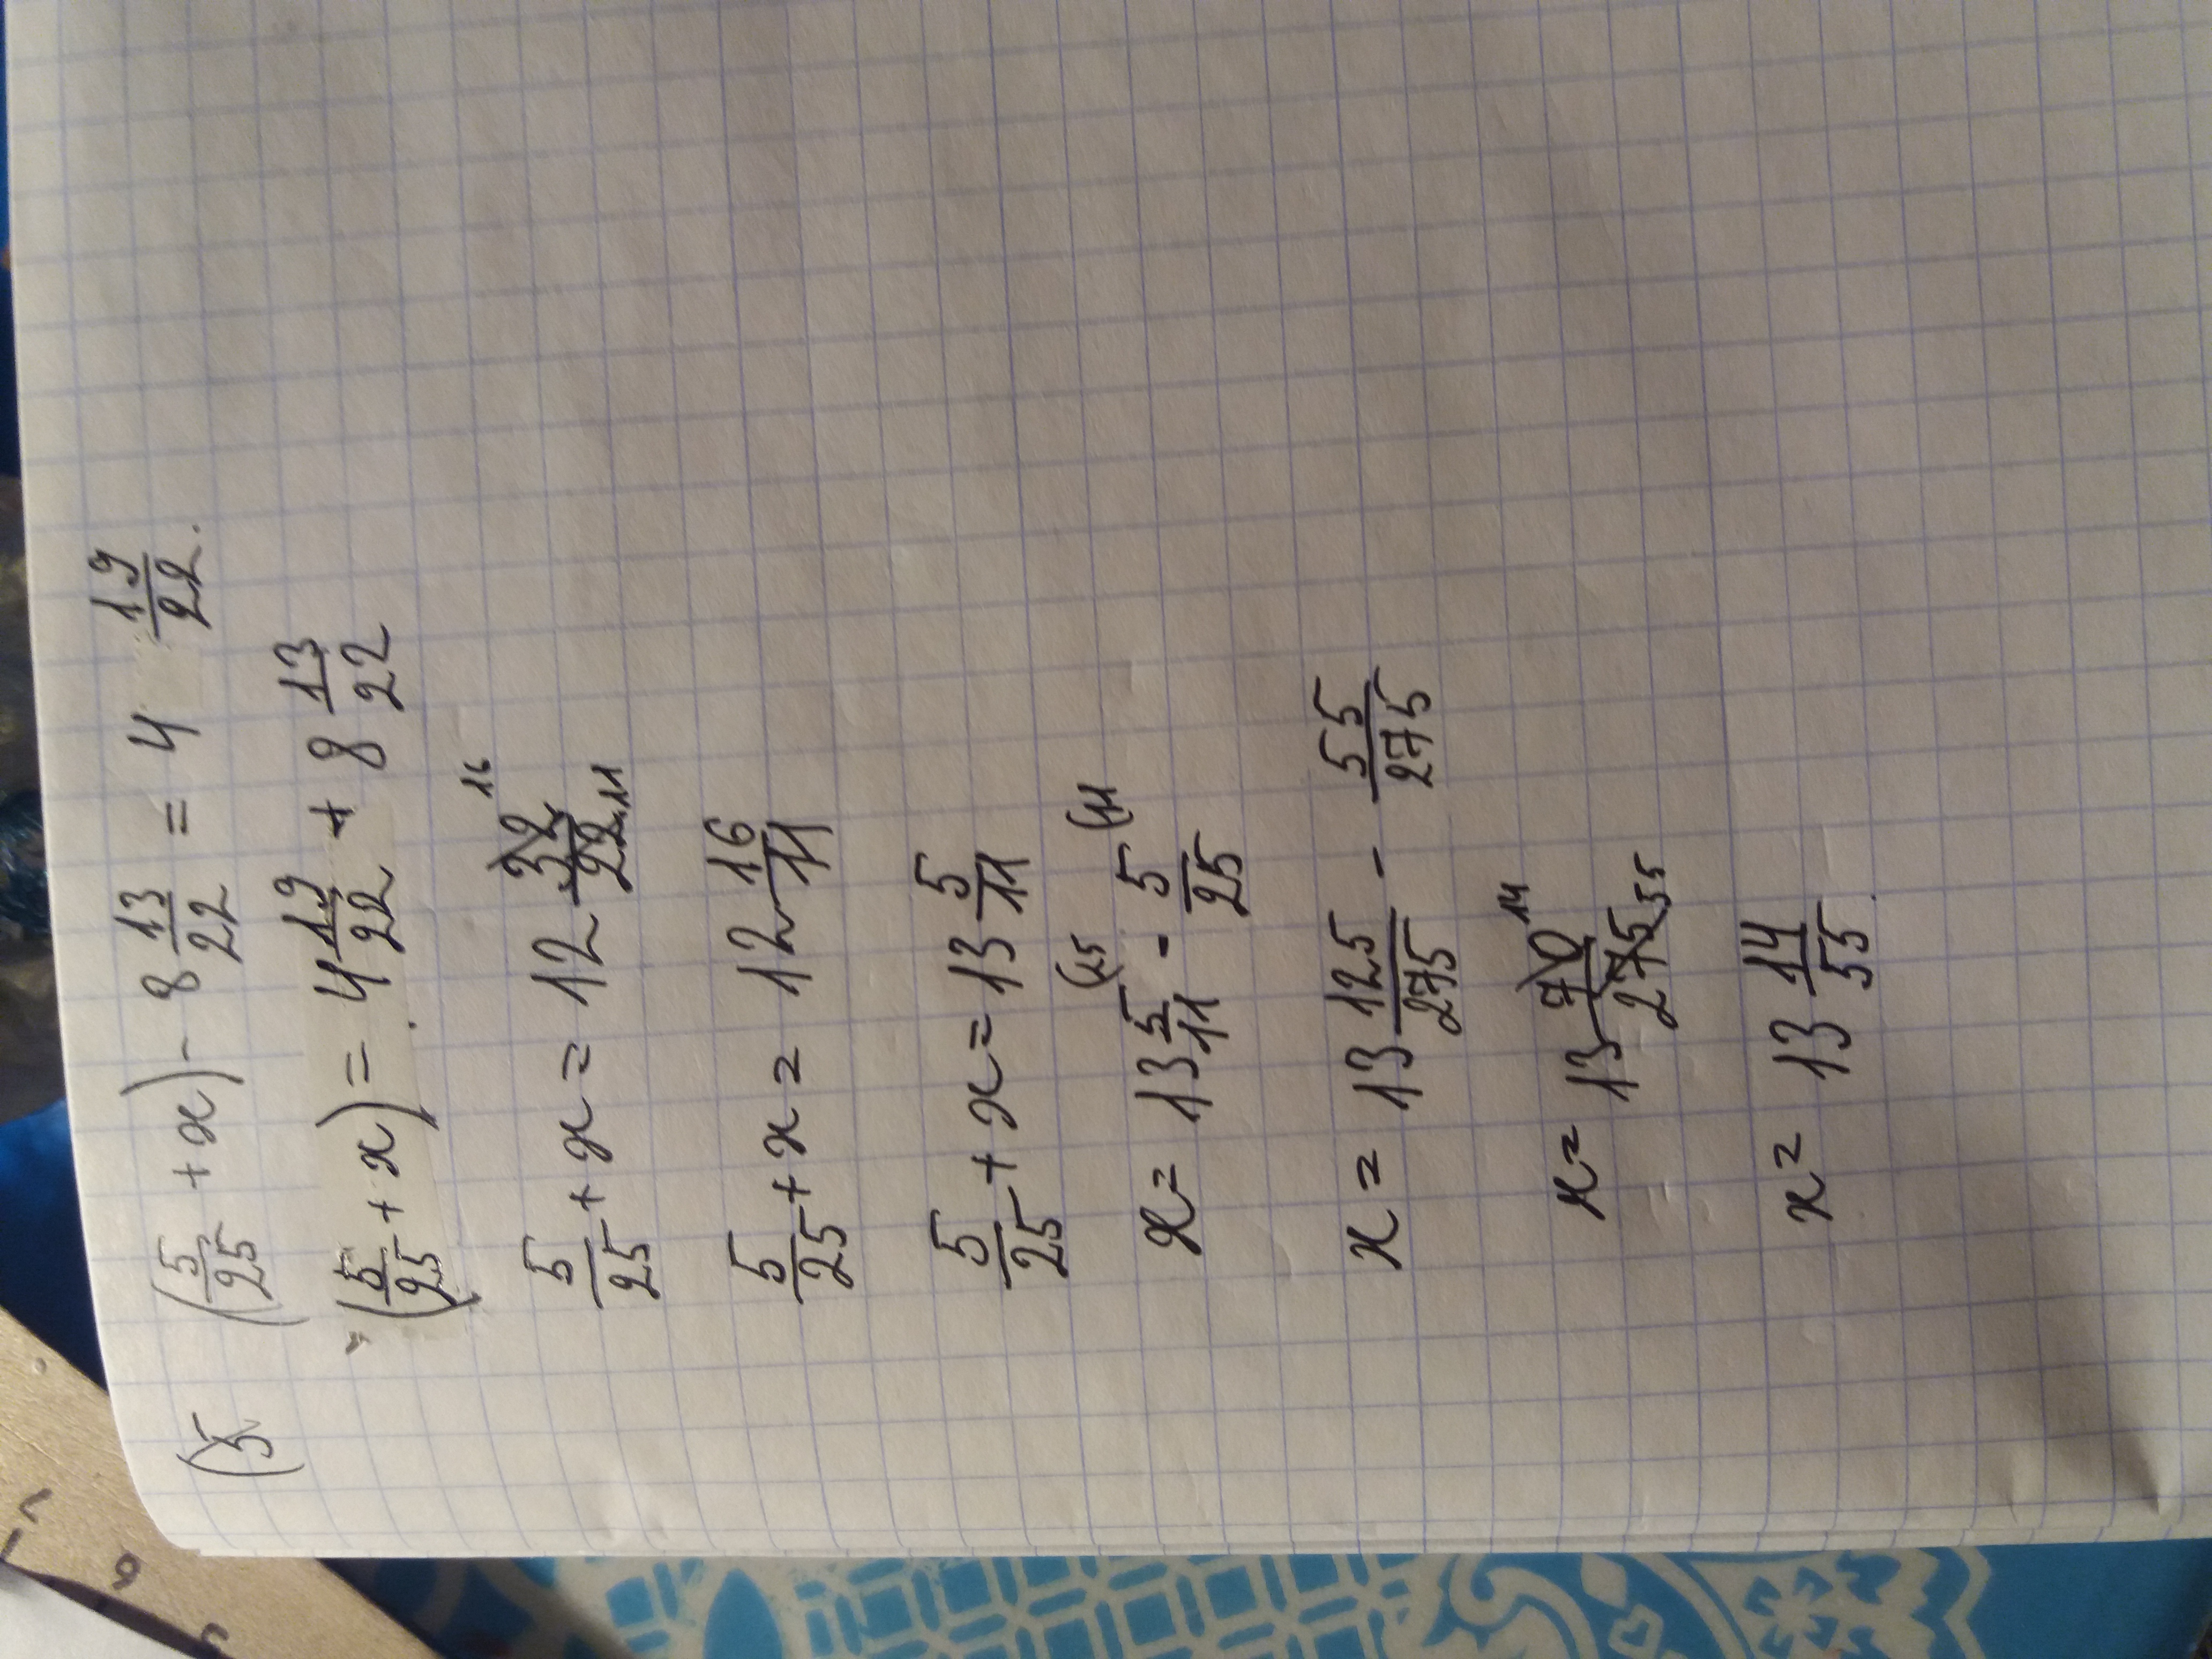 (5 (5/25 + x) - 8 13/22 = 4 19/22.
(5/25 + x) = 4 19/22 + 8 13/22
5/25 + x = 12 32/22 16 11
5/25 + x = 12 16/11
5/25 + x = 13 5/11
x = 13 5/11 (25 - 5/25 (11
x = 13 125/275 - 55/275
x = 13 70/275 14 55
x = 13 14/55